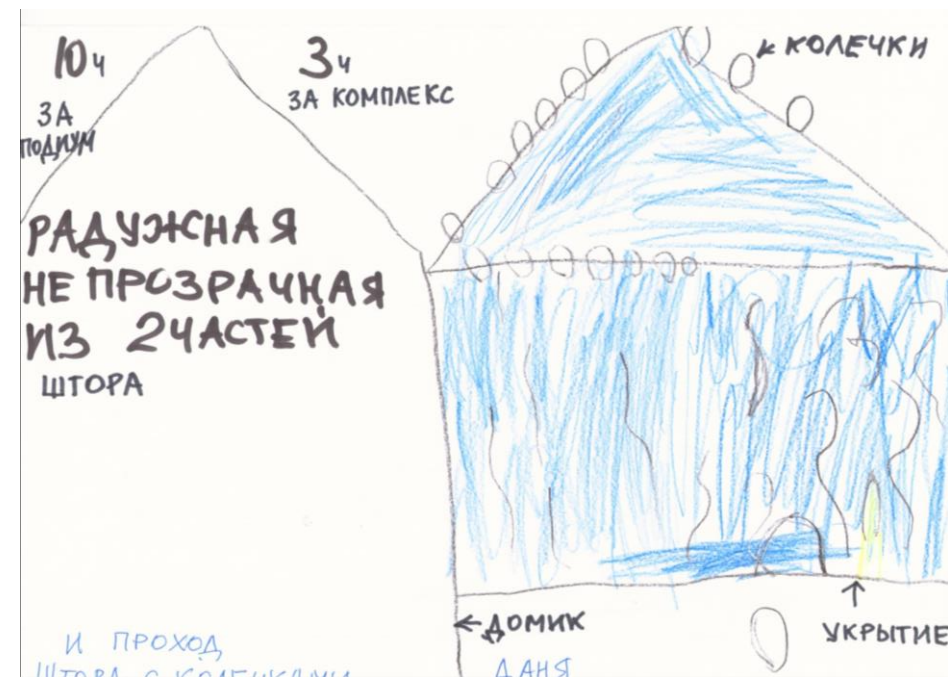 10ч
ЗА
ПОДИУМ
3ч
ЗА КОМПЛЕКС
КОЛЕЧКИ
РАДУЖНАЯ
НЕ ПРОЗРАЧНАЯ
ИЗ 2 ЧАСТЕЙ
ШТОРА
ДОМИК
УКРЫТИЕ
И ПРОХОД
ШТОРА С КОЛЕЧКАМИ
ДАНЯ